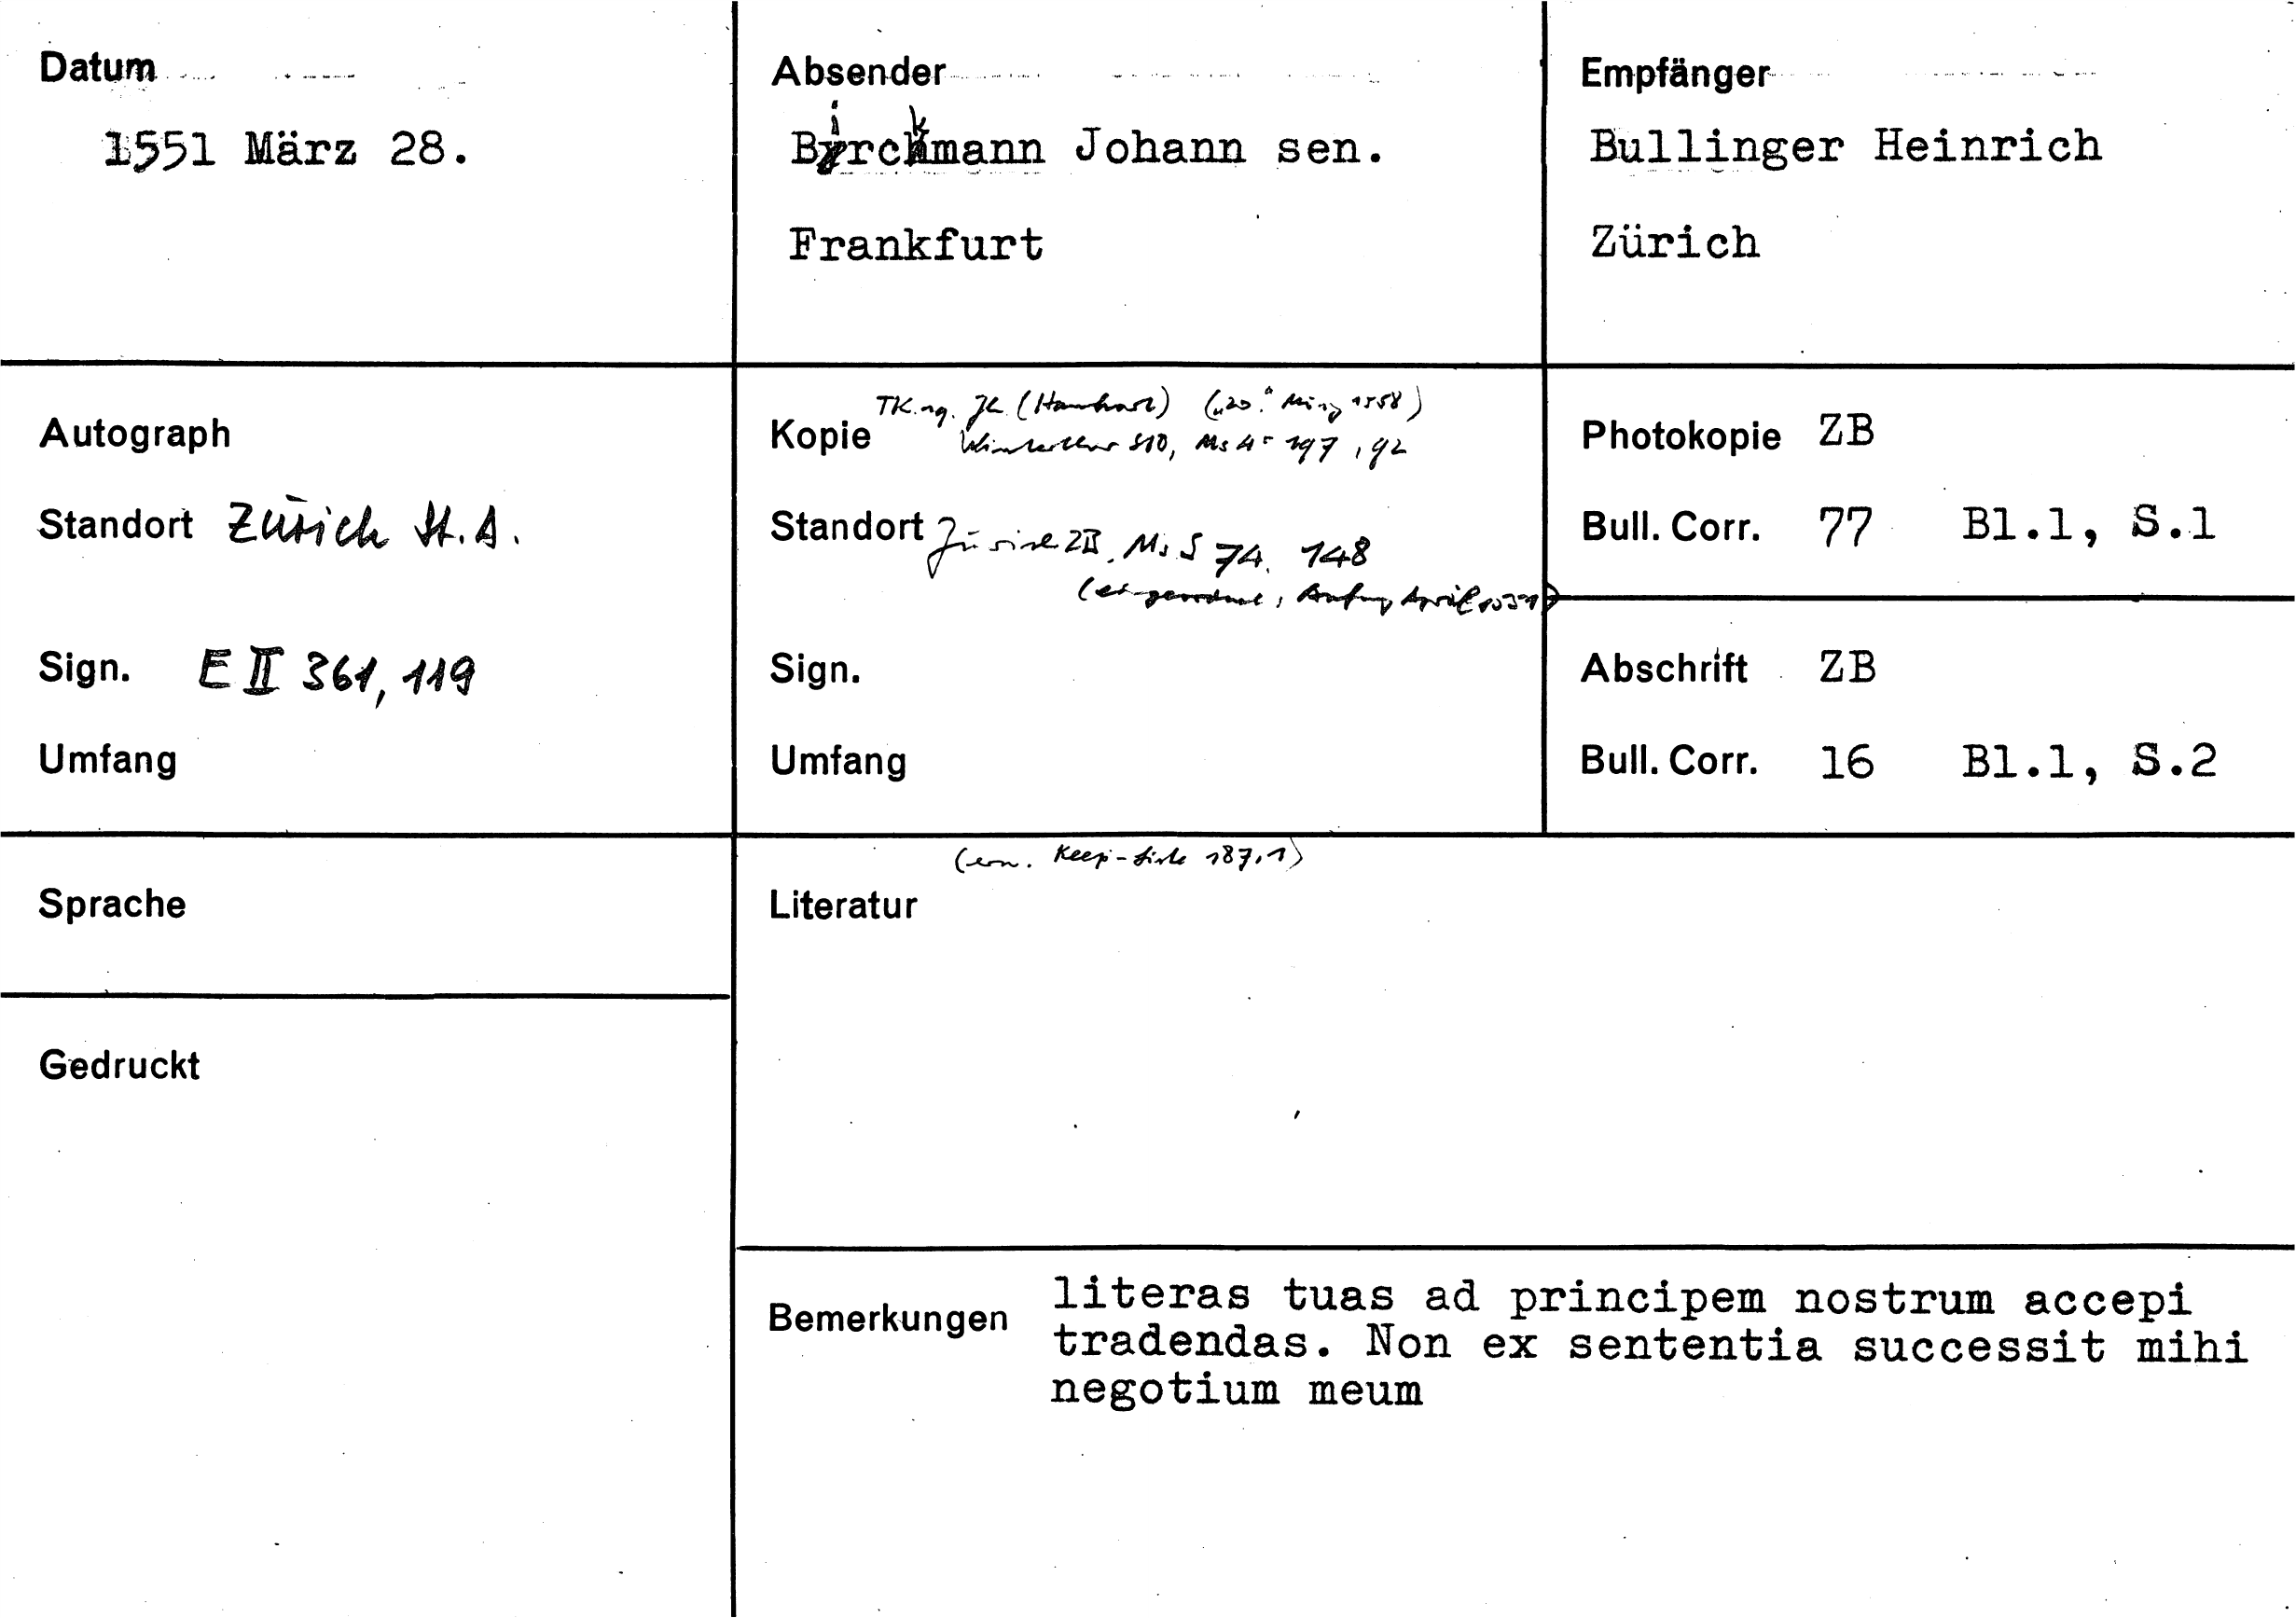 Datum
1551 März 28.
Absender
Birckmann Johann sen.
Frankfurt
Empfänger
Bullinger Heinrich
Zürich
Autograph
Standort Zürich St. A.
Sign. E II 361, 119
Umfang
Kopie
("20." März 1558)
Winterthur StB, Ms 4° 197, 92
Standort Zürich ZB, Ms S 74. 148
(eingeordnet, Anfang April 1551)
Sign.
Umfang
Photokopie ZB
Bull. Corr. 77 Bl.1, S.1
Abschrift ZB
Bull. Corr. 16 Bl.1, S.2
Sprache
Gedruckt
187,1)
Literatur
Bemerkungen literas tuas ad principem nostrum accepi
tradendas. Non ex sententia successit mihi
negotium meum